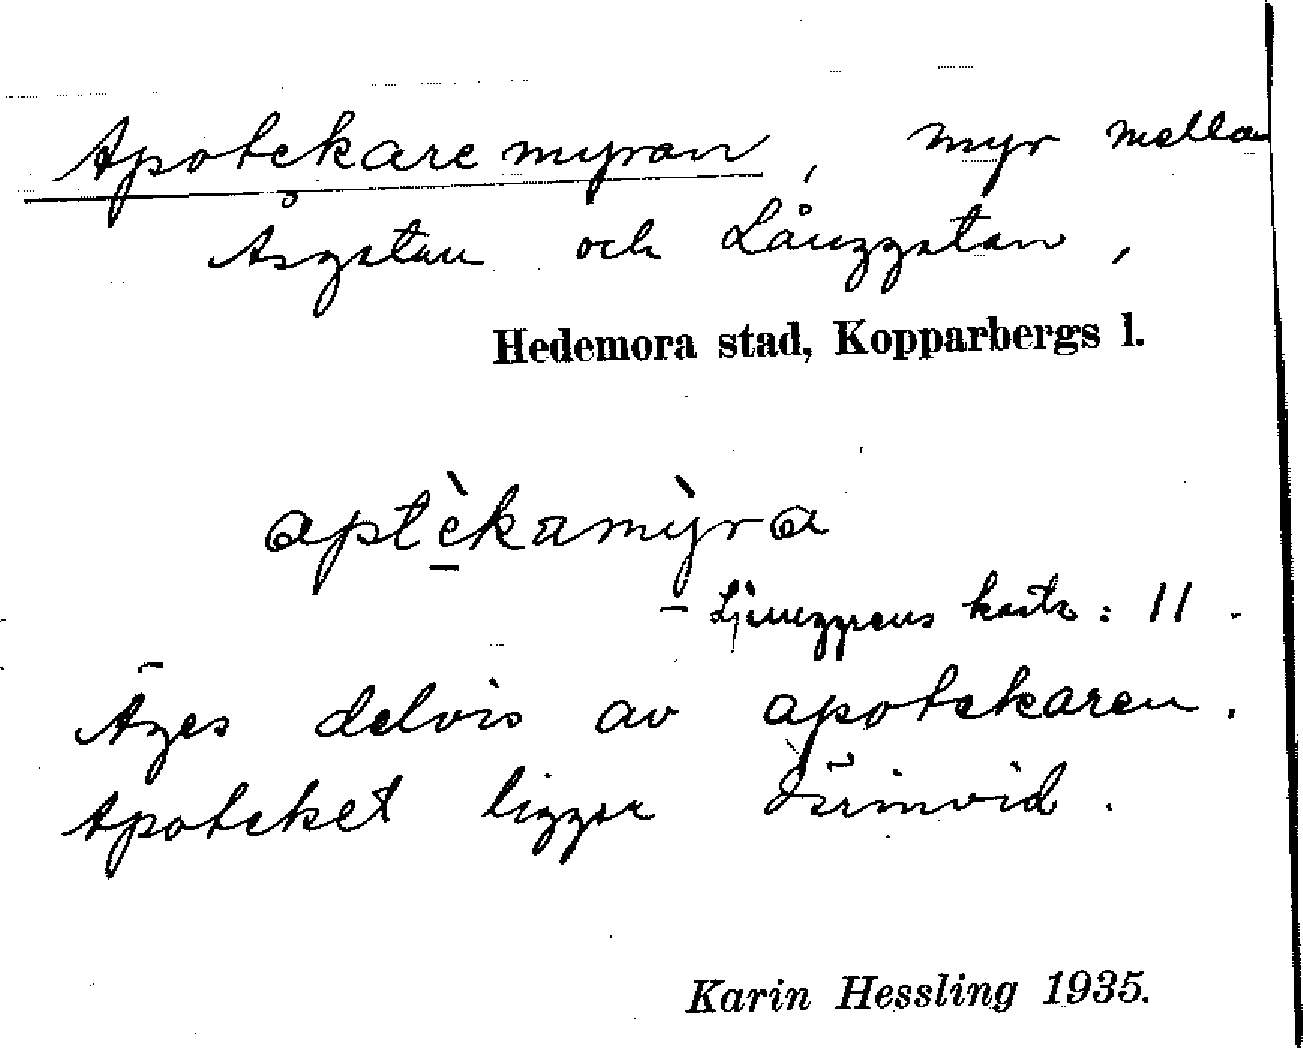 Apotekaremyran, myr mellan
Åsgatan och Långgatan,
Hedemora stad, Kopparbergs l.
aptèkamỳra
– Ljunggrens karta: 11.
Äges delvis av apotekaren.
Apoteket ligger därinvid.
Karin Hessling 1935.